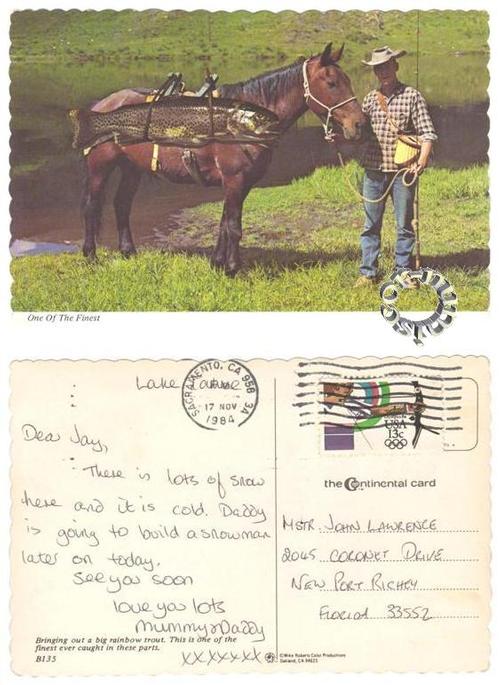 One Of The Finest
Lake Tahoe
SACRAMENTO, CA 958 3A
17 NOV
1984
USA
13c
Dear Jay,
There is lots of snow
here and it is cold. Daddy
is going to build a snowman
later on today.
See you soon
love you lots
Mummy & Daddy
xxxxxxx
the Continental card
MSTR. JOHN LAWRENCE
2045 CORONET DRIVE
NEW PORT RICHEY
FLORIDA 33552
Bringing out a big rainbow trout. This is one of the
finest ever caught in these parts.
B135
©Mike Roberts Color Productions
Oakland, CA 94623